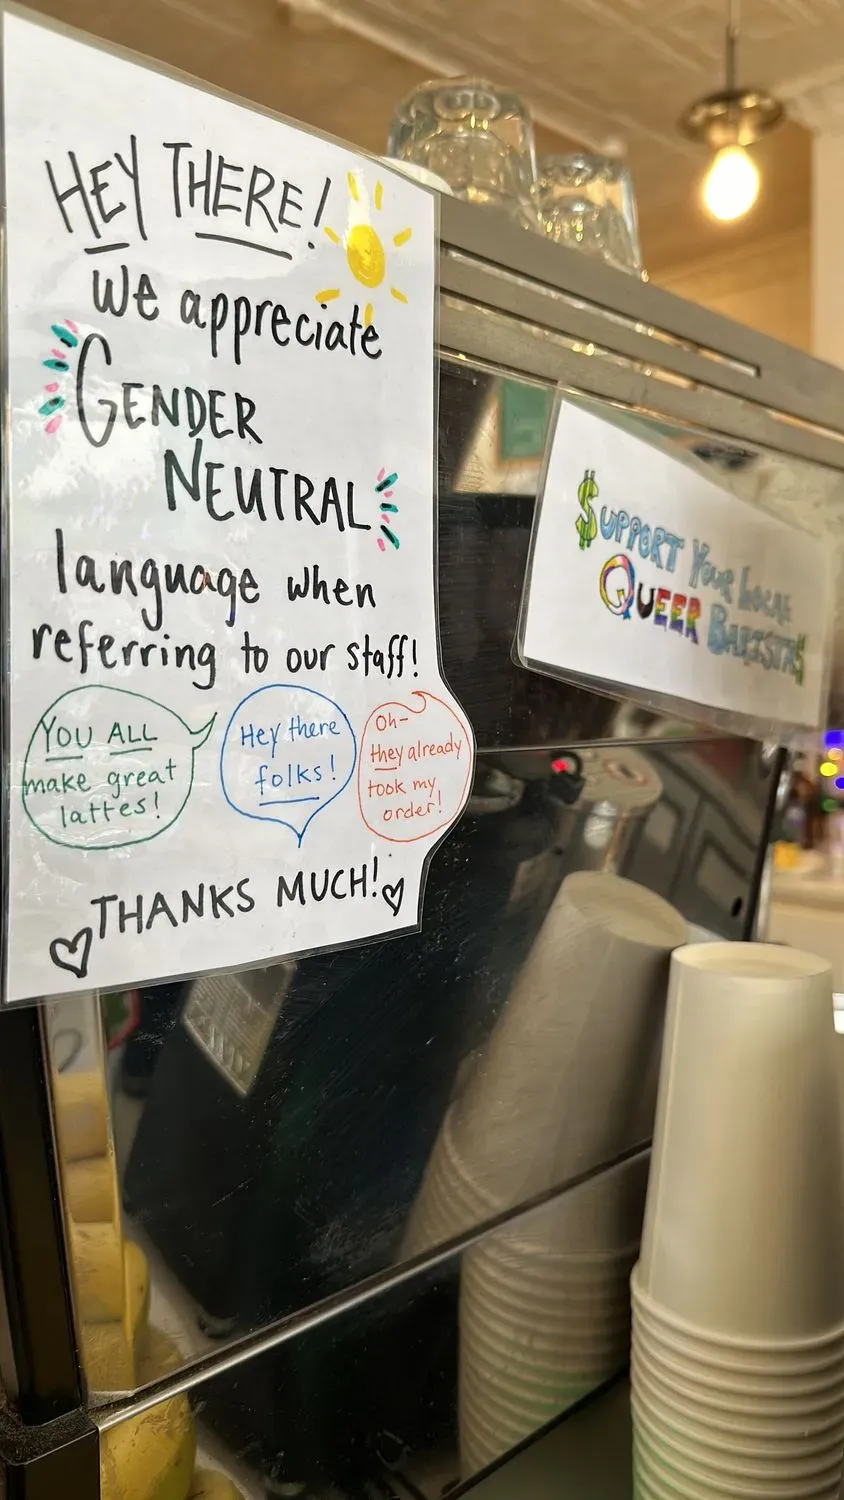 HEY THERE!
we appreciate
GENDER
NEUTRAL
language when
referring to our staff!
YOU ALL
make great
lattes!
Hey there
folks!
Oh-
they already
took my
order!
THANKS MUCH!
$UPPORT YOUR LOCAL
QUEER BARISTA$